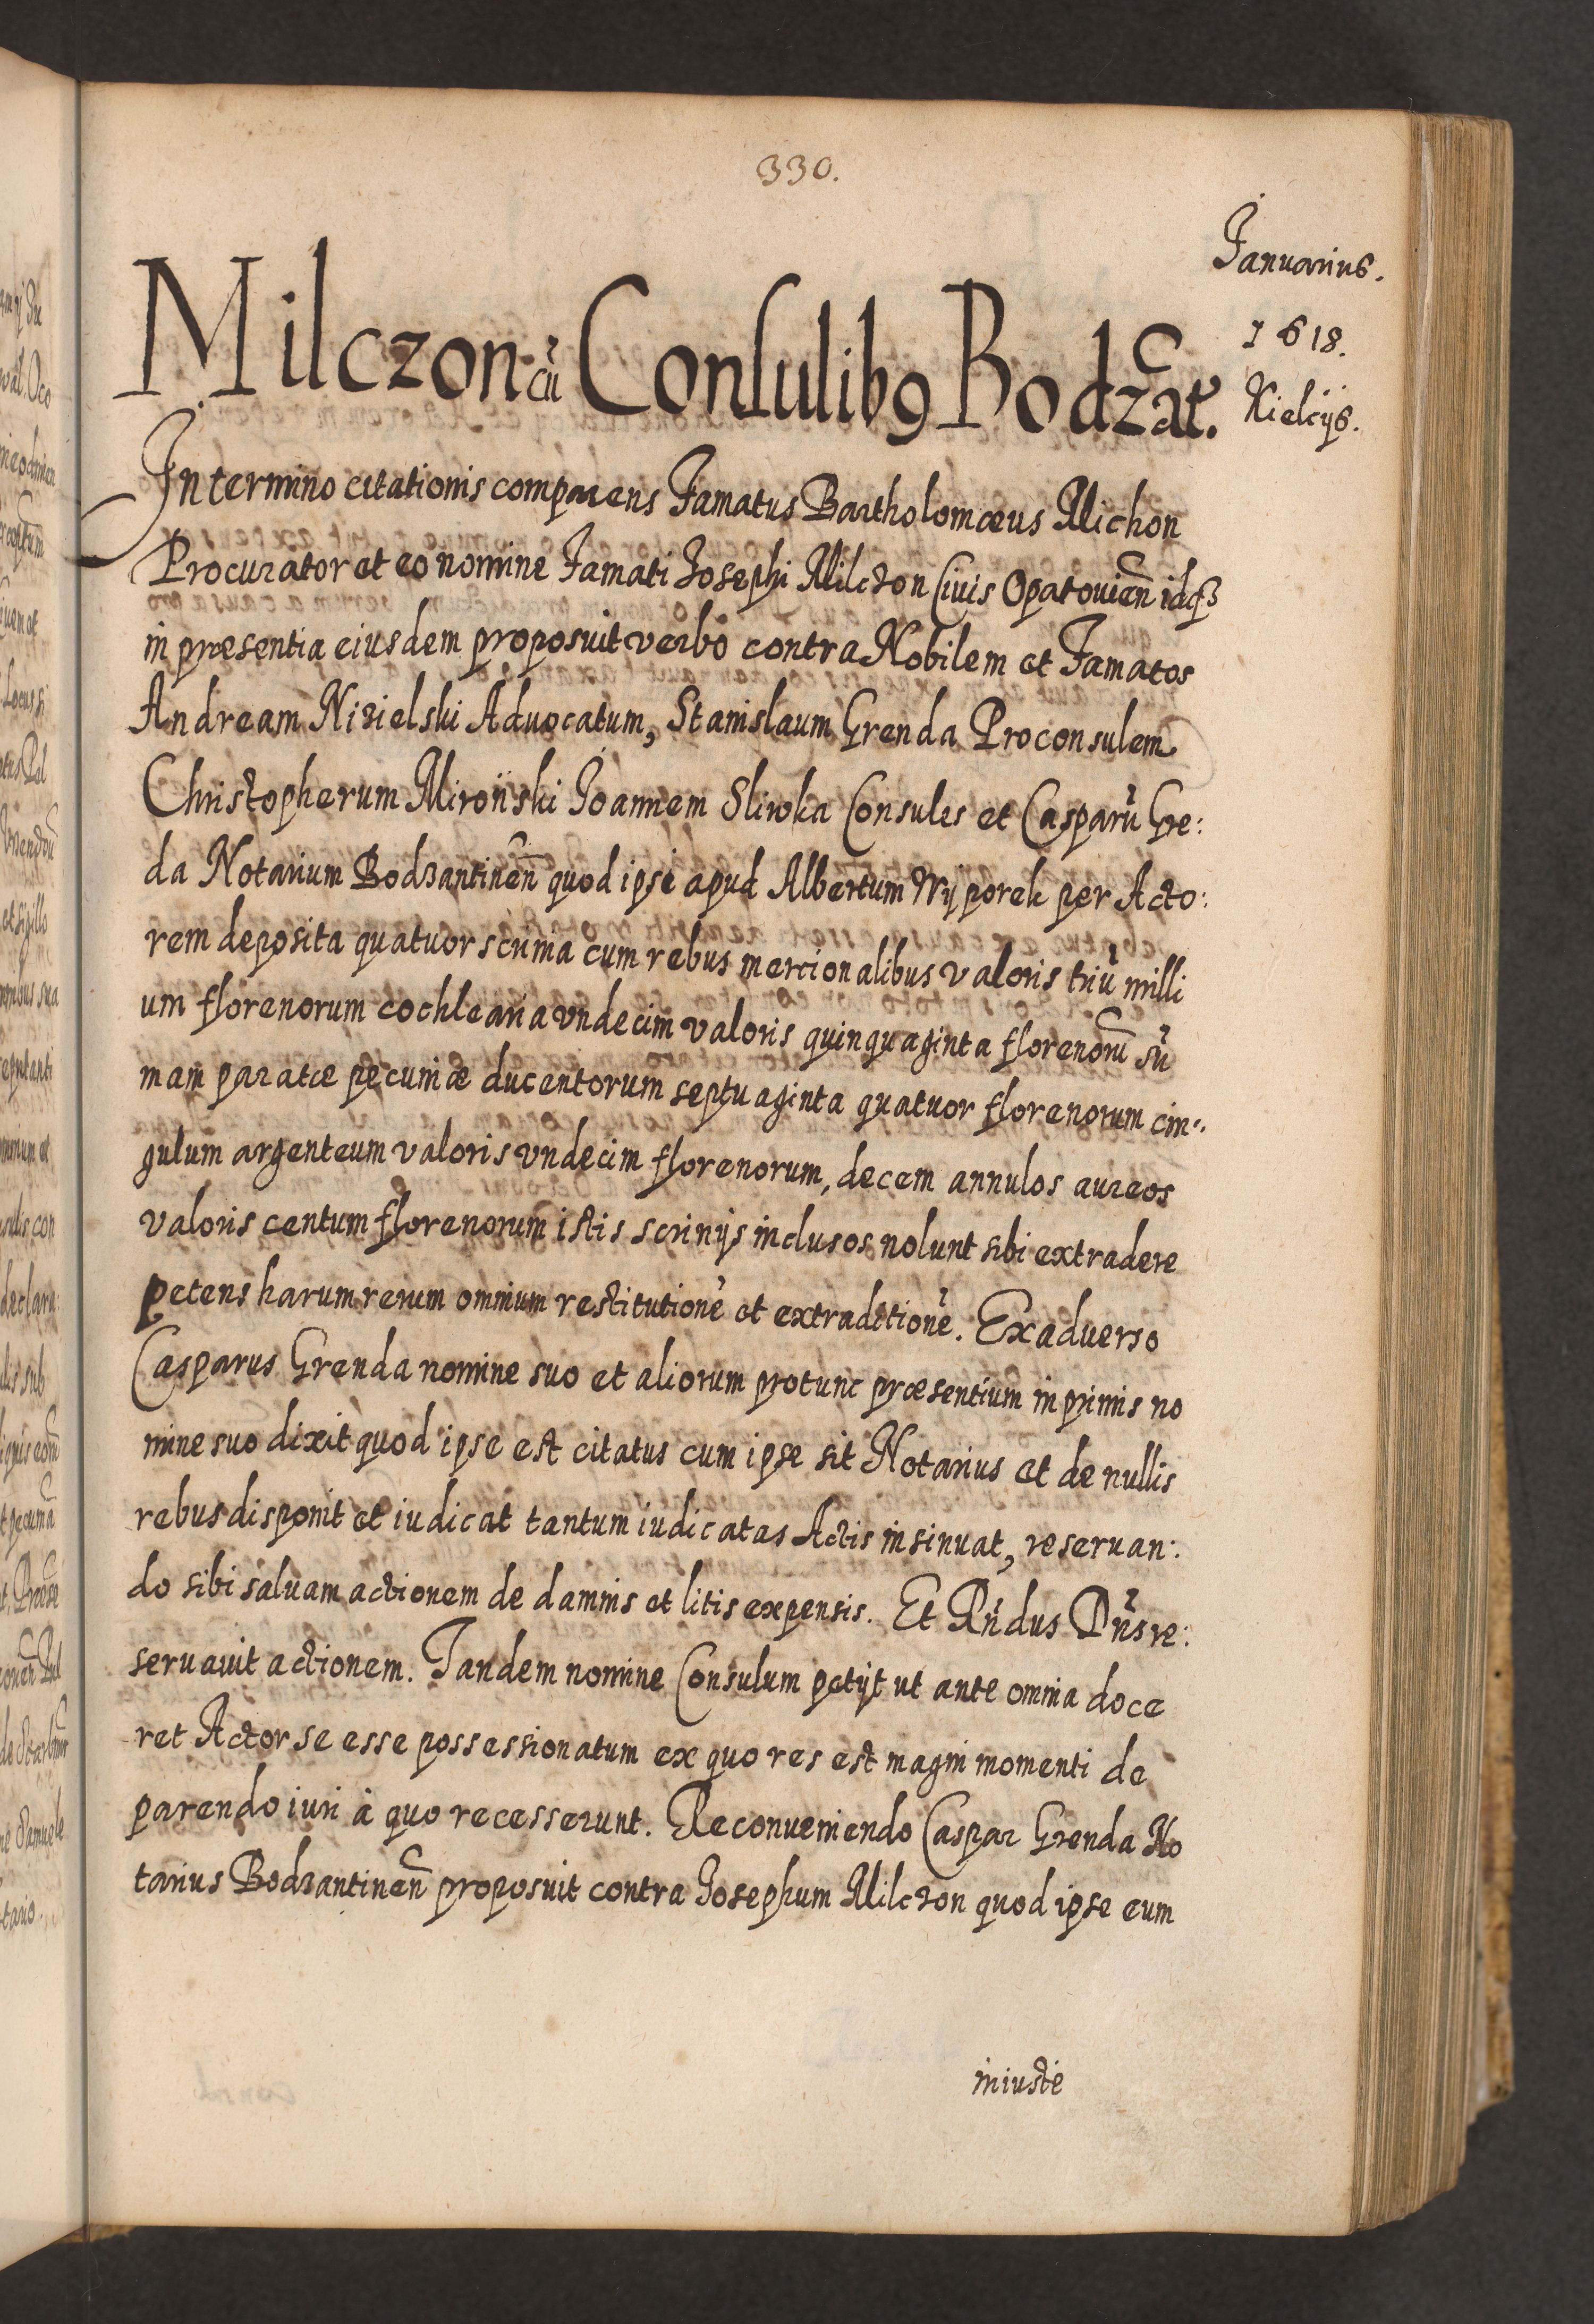 330.
Januarius.
1618.
Kielcijs.
Milczon cũ Consulibꝯ Bodzãt.
In termino citationis comparens Famatus Bartholomæus Michon
Procurator et eo nomine Famati Josephi Milczon Civis Opatouieñ idqꝫ
in præsentia eiusdem proposuit verbo contra Nobilem et Famatos
Andream Nizielski Aduocatum, Stanislaum Grenda Proconsulem
Christopherum Miroński Joannem Sliwka Consules et Casparũ Gre:
da Notarium Bodzantineñ quod ipsi apud Albertum Wyporek per Acto:
rem deposita quatuor scrinia cum rebus mercionalibus valoris triũ milli
um florenorum cochlearia vndecim valoris quinquaginta florenorũ sũ
mam paratæ pecuniæ ducentorum septuaginta quatuor florenorum cin:
gulum argenteum valoris vndecim florenorum, decem annulos aureos
valoris centum florenorum istis scrinijs inclusos nolunt sibi extradere
petens harum rerum omnium restitutionẽ et extraditionẽ. Ex aduerso
Casparus Grenda nomine suo et aliorum protunc præsentium in primis no
mine suo dixit quod ipse est citatus cum ipse sit Notarius et de nullis
rebus disponit et iudicat tantum iudicatas Actis insinuat, reseruan:
do sibi saluam actionem de damnis et litis expensis. Et Rñdus Dñs re:
seruauit actionem. Tandem nomine Consulum petijt ut ante omnia doce
ret Actor se esse possessionatum ex quo res est magni momenti de
parendo iuri à quo recesserunt. Reconueniendo Caspar Grenda No
tarius Bodzantineñ proposuit contra Josephum Milczon quod ipse eum
iniustè